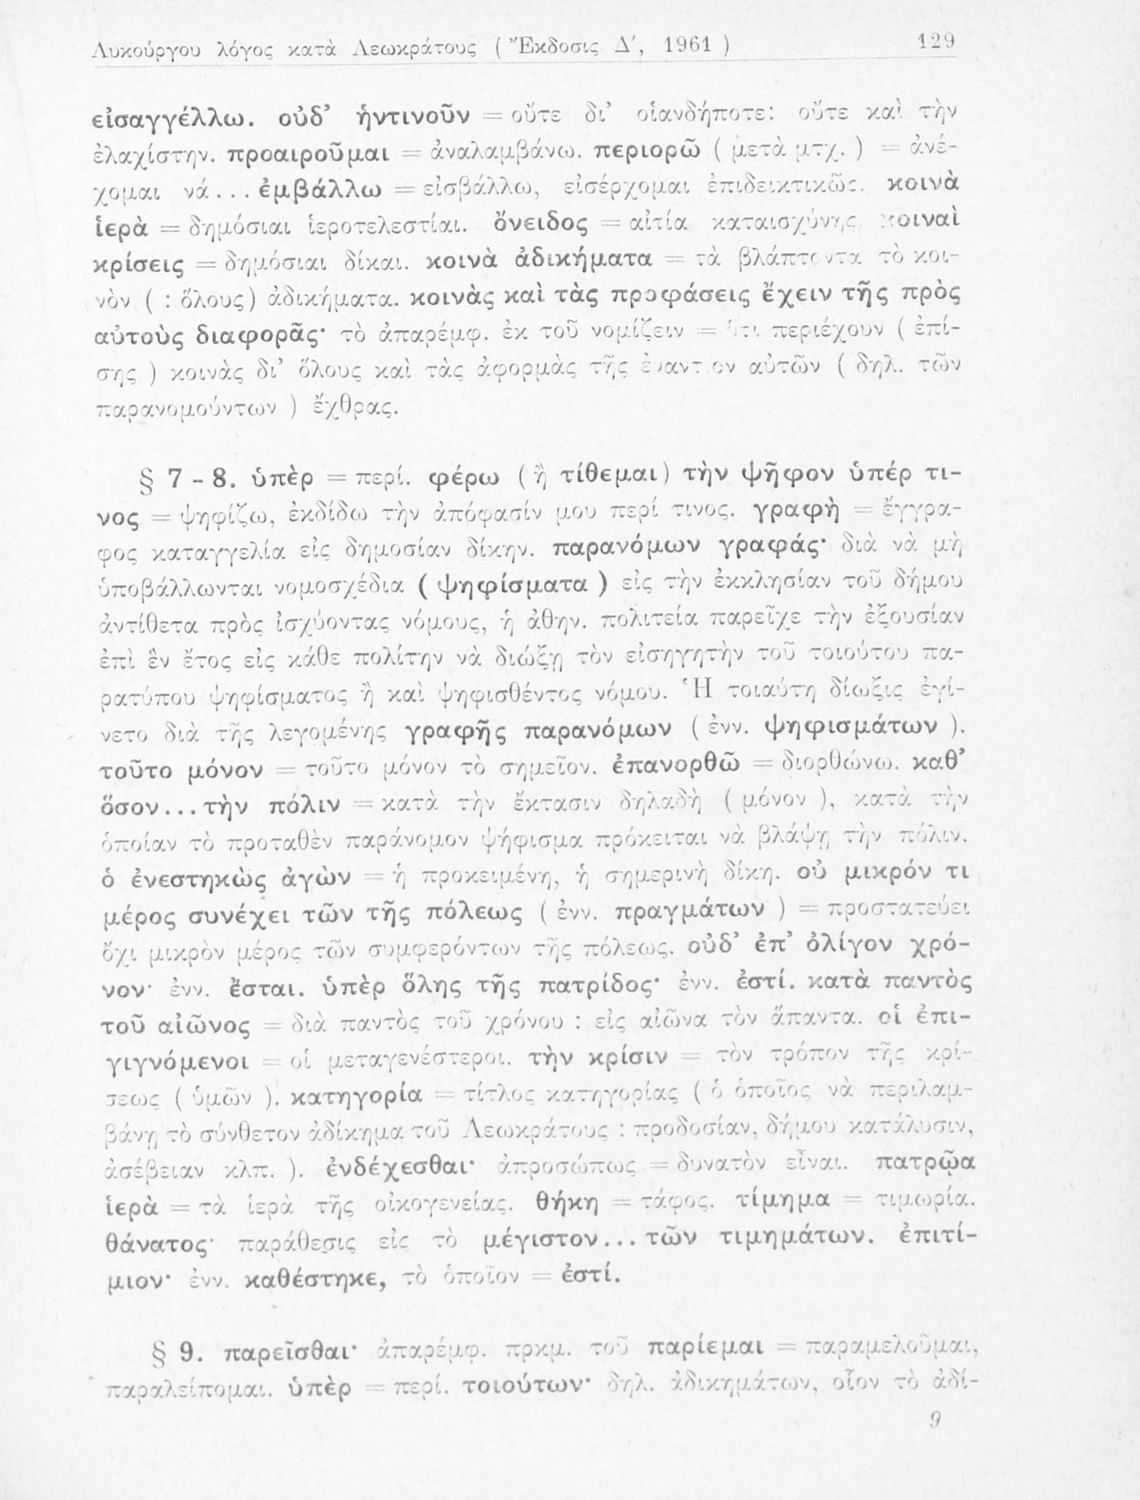 Λυκούργου λόγος κατὰ Λεωκράτους ( Ἔκδοσις Δ΄, 1961 ) 129
εἰσαγγέλλω. οὐδ’ ἡντινοῦν = οὔτε δι’ οἱανδήποτε: οὔτε καὶ τὴν
ἐλαχίστην. προαιροῦμαι = ἀναλαμβάνω. περιορῶ ( μετὰ μτχ. ) = ἀνέ-
χομαι νά... ἐμβάλλω = εἰσβάλλω, εἰσέρχομαι ἐπιδεικτικῶς. κοινὰ
ἱερὰ = δημόσιαι ἱεροτελεστίαι. ὄνειδος = αἰτία καταισχύνης. κοιναὶ
κρίσεις = δημόσιαι δίκαι. κοινὰ ἀδικήματα = τὰ βλάπτοντα τὸ κοι-
νὸν ( : ὅλους) ἀδικήματα. κοινὰς καὶ τὰς προφάσεις ἔχειν τῆς πρὸς
αὐτοὺς διαφορᾶς· τὸ ἀπαρέμφ. ἐκ τοῦ νομίζειν = ὅτι περιέχουν ( ἐπί-
σης ) κοινὰς δι’ ὅλους καὶ τὰς ἀφορμὰς τῆς ἐναντίον αὐτῶν ( δηλ. τῶν
παρανομούντων ) ἔχθρας.
§ 7 - 8. ὑπὲρ = περί. φέρω ( ἢ τίθεμαι) τὴν ψῆφον ὑπέρ τι-
νος = ψηφίζω, ἐκδίδω τὴν ἀπόφασίν μου περί τινος. γραφὴ = ἔγγρα-
φος καταγγελία εἰς δημοσίαν δίκην. παρανόμων γραφάς· διὰ νὰ μὴ
ὑποβάλλωνται νομοσχέδια ( ψηφίσματα ) εἰς τὴν ἐκκλησίαν τοῦ δήμου
ἀντίθετα πρὸς ἰσχύοντας νόμους, ἡ ἀθην. πολιτεία παρεῖχε τὴν ἐξουσίαν
ἐπὶ ἓν ἔτος εἰς κάθε πολίτην νὰ διώξῃ τὸν εἰσηγητὴν τοῦ τοιούτου πα-
ρατύπου ψηφίσματος ἢ καὶ ψηφισθέντος νόμου. Ἡ τοιαύτη δίωξις ἐγί-
νετο διὰ τῆς λεγομένης γραφῆς παρανόμων ( ἐνν. ψηφισμάτων ).
τοῦτο μόνον = τοῦτο μόνον τὸ σημεῖον. ἐπανορθῶ = διορθώνω. καθ’
ὅσον...τὴν πόλιν = κατὰ τὴν ἔκτασιν δηλαδὴ ( μόνον ), κατὰ τὴν
ὁποίαν τὸ προταθὲν παράνομον ψήφισμα πρόκειται νὰ βλάψῃ τὴν πόλιν.
ὁ ἐνεστηκὼς ἀγὼν = ἡ προκειμένη, ἡ σημερινὴ δίκη. οὐ μικρόν τι
μέρος συνέχει τῶν τῆς πόλεως ( ἐνν. πραγμάτων ) = προστατεύει
ὄχι μικρὸν μέρος τῶν συμφερόντων τῆς πόλεως. οὐδ’ ἐπ’ ὀλίγον χρό-
νον· ἐνν. ἔσται. ὑπὲρ ὅλης τῆς πατρίδος· ἐνν. ἐστί. κατὰ παντὸς
τοῦ αἰῶνος = διὰ παντὸς τοῦ χρόνου : εἰς αἰῶνα τὸν ἅπαντα. οἱ ἐπι-
γιγνόμενοι = οἱ μεταγενέστεροι. τὴν κρίσιν = τὸν τρόπον τῆς κρί-
σεως ( ὑμῶν ). κατηγορία = τίτλος κατηγορίας ( ὁ ὁποῖος νὰ περιλαμ-
βάνῃ τὸ σύνθετον ἀδίκημα τοῦ Λεωκράτους : προδοσίαν, δήμου κατάλυσιν,
ἀσέβειαν κλπ. ). ἐνδέχεσθαι· ἀπροσώπως = δυνατὸν εἶναι. πατρῷα
ἱερὰ = τὰ ἱερὰ τῆς οἰκογενείας. θήκη = τάφος. τίμημα = τιμωρία.
θάνατος· παράθεσις εἰς τὸ μέγιστον...τῶν τιμημάτων. ἐπιτί-
μιον· ἐνν. καθέστηκε, τὸ ὁποῖον = ἐστί.
§ 9. παρεῖσθαι· ἀπαρέμφ. πρκμ. τοῦ παρίεμαι = παραμελοῦμαι,
παραλείπομαι. ὑπὲρ = περί. τοιούτων· δηλ. ἀδικημάτων, οἷον τὸ ἀδί-
9